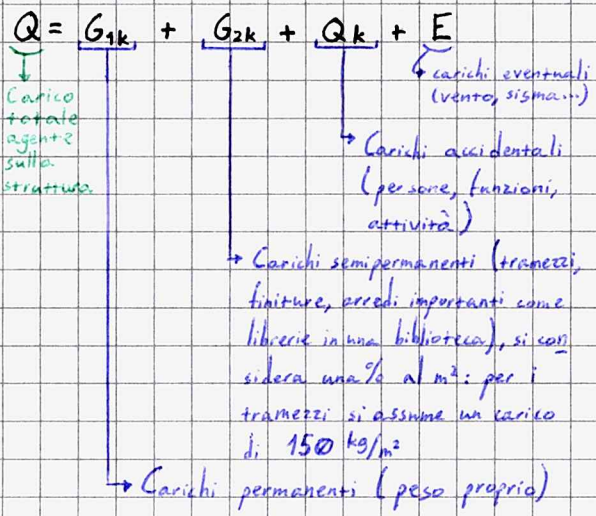 Q = G1k + G2k + Qk + E
Carico
totale
agente
sulla
struttura
carichi eventuali
(vento, sisma...)
Carichi accidentali
(persone, funzioni,
attività)
Carichi semipermanenti (tramezzi,
finiture, arredi importanti come
librerie in una biblioteca), si con
sidera una % al m²: per i
tramezzi si assume un carico
di 150 kg/m²
Carichi permanenti (peso proprio)